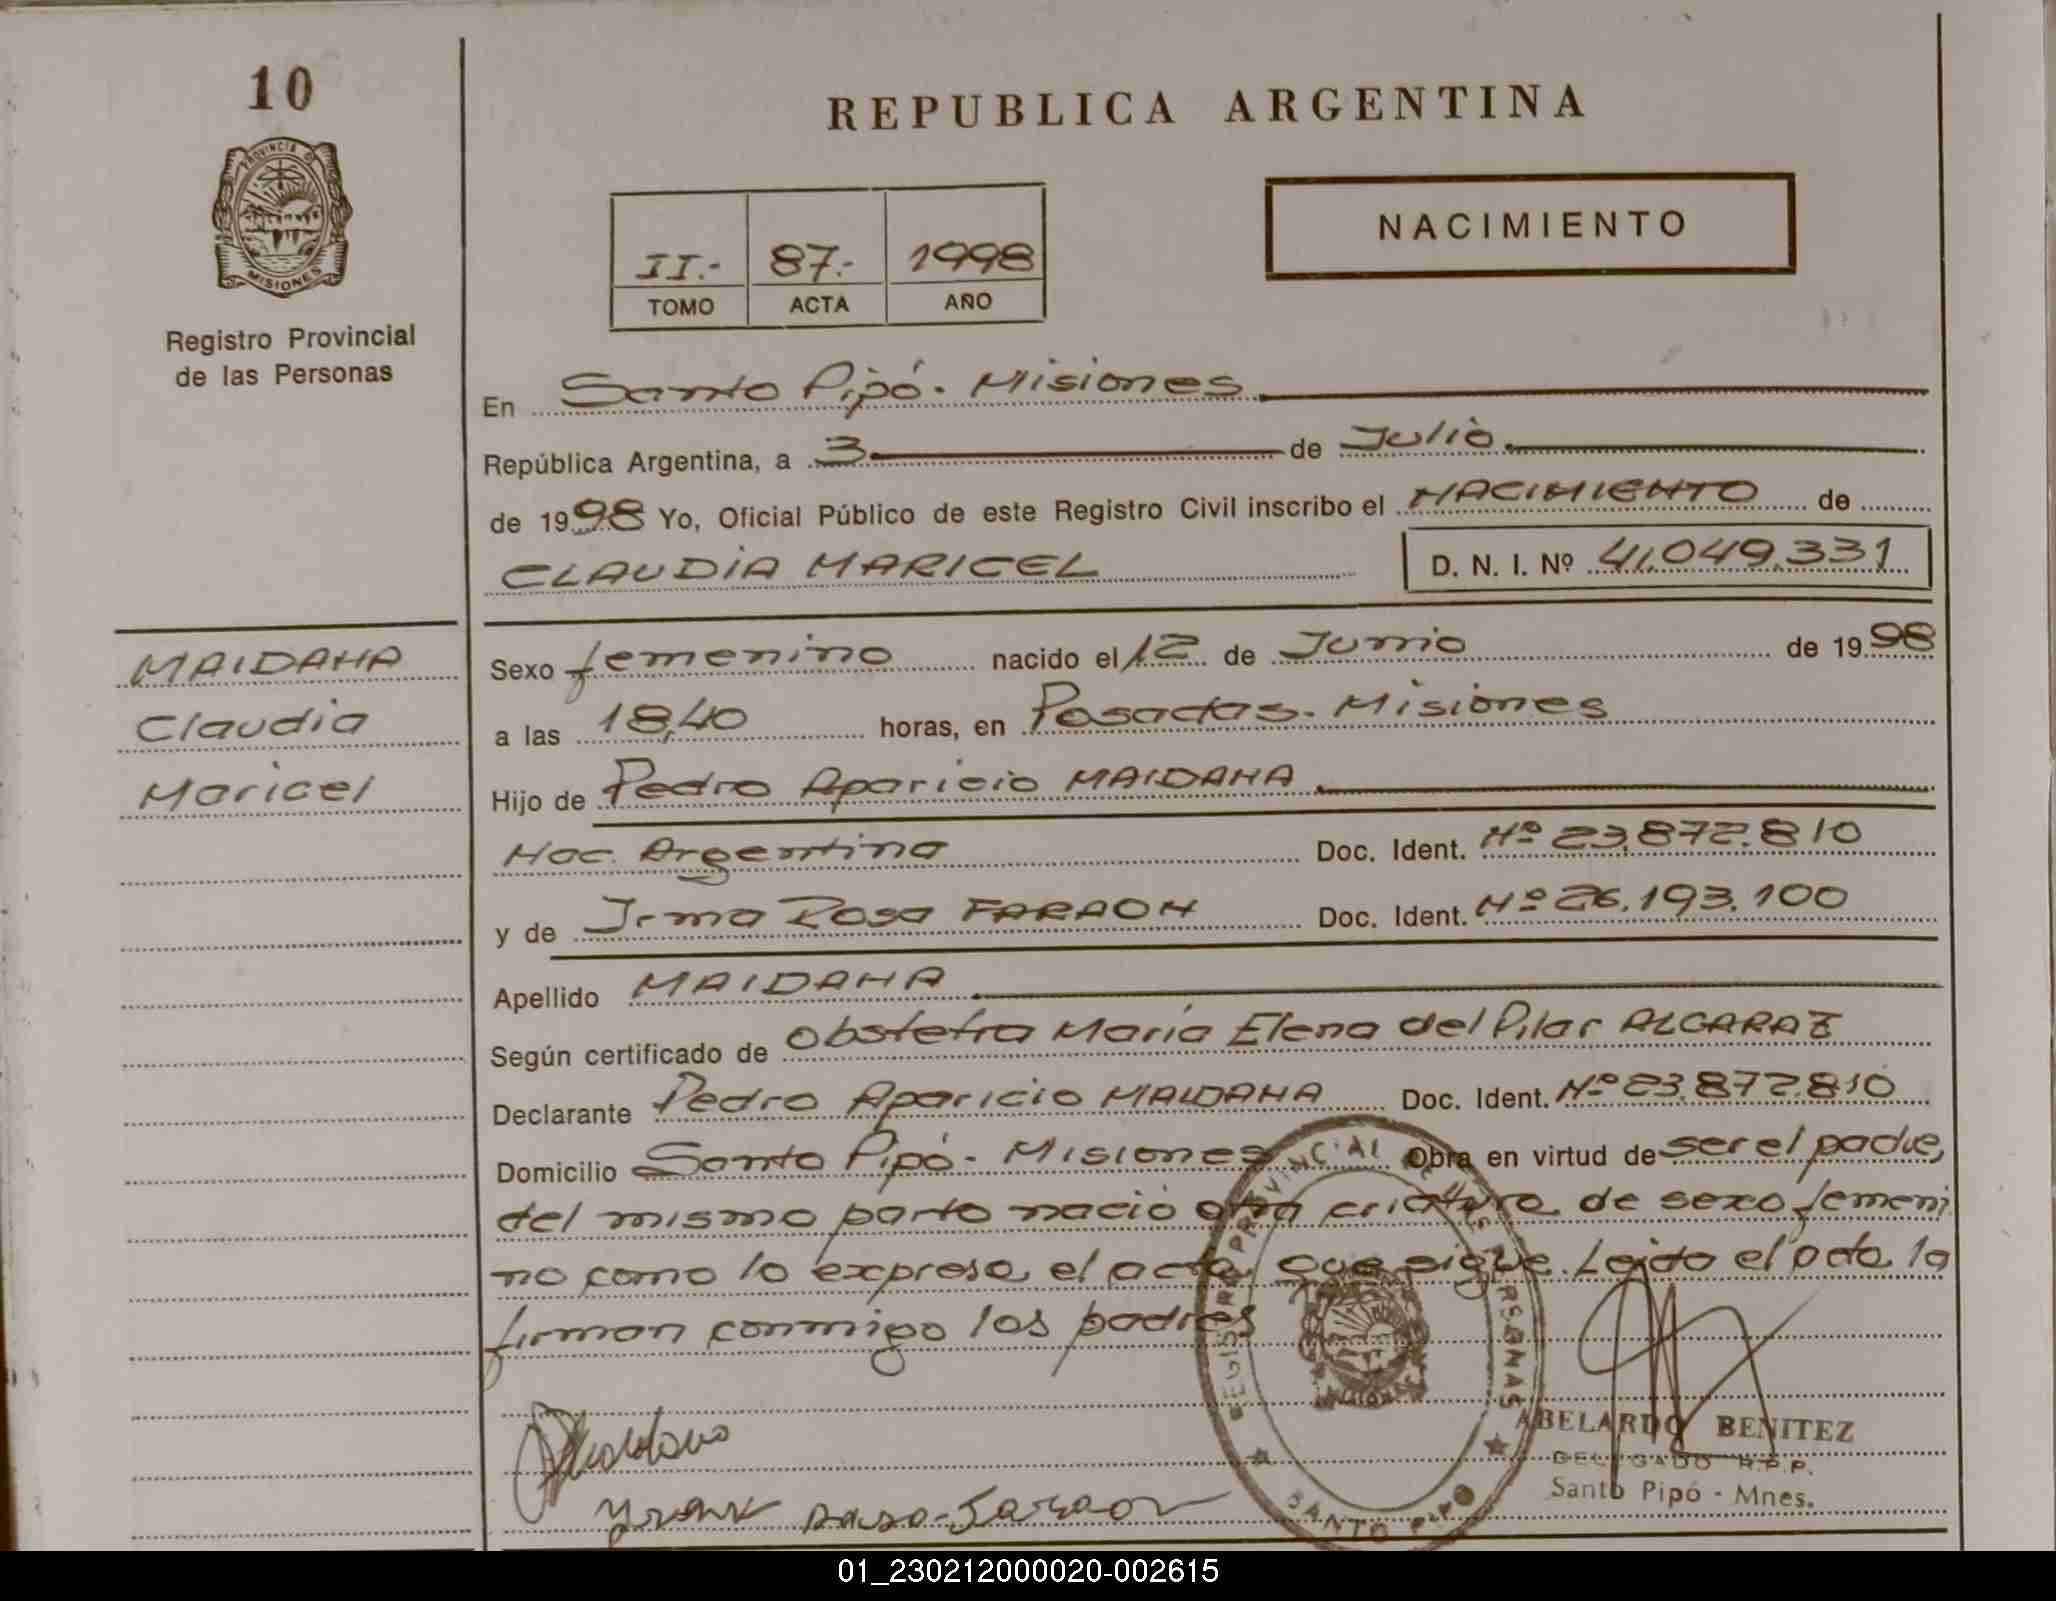 10
REPUBLICA ARGENTINA
PROVINCIA DE
MISIONES
NACIMIENTO
II.- 87.- 1998
TOMO ACTA AÑO
Registro Provincial
de las Personas
En Santo Pipó. Misiones
República Argentina, a 3 de Julio
de 1998 Yo, Oficial Público de este Registro Civil inscribo el NACIMIENTO de
CLAUDIA MARICEL D. N. I. Nº 41.049.331
MAIDANA
Claudia
Maricel
Sexo femenino nacido el 12 de Junio de 1998
a las 18,40 horas, en Posadas. Misiones
Hijo de Pedro Aparicio MAIDANA
Nac. Argentina Doc. Ident. Nº 23.872.810
y de Irma Rosa FARAON Doc. Ident. Nº 26.193.100
Apellido MAIDANA
Según certificado de obstetra María Elena del Pilar ALCARAZ
Declarante Pedro Aparicio MAIDANA Doc. Ident. Nº 23.872.810
Domicilio Santo Pipó. Misiones Obra en virtud de ser el padre,
del mismo parto nació otra criatura de sexo femeni
no como lo expresa el acta que sigue. Leido el acta la
firman conmigo los padres
REGISTRO PROVINCIAL DE LAS PERSONAS
SANTO PIPO
ABELARDO BENITEZ
DELEGADO R.P.P.
Santo Pipó - Mnes.
01_230212000020-002615